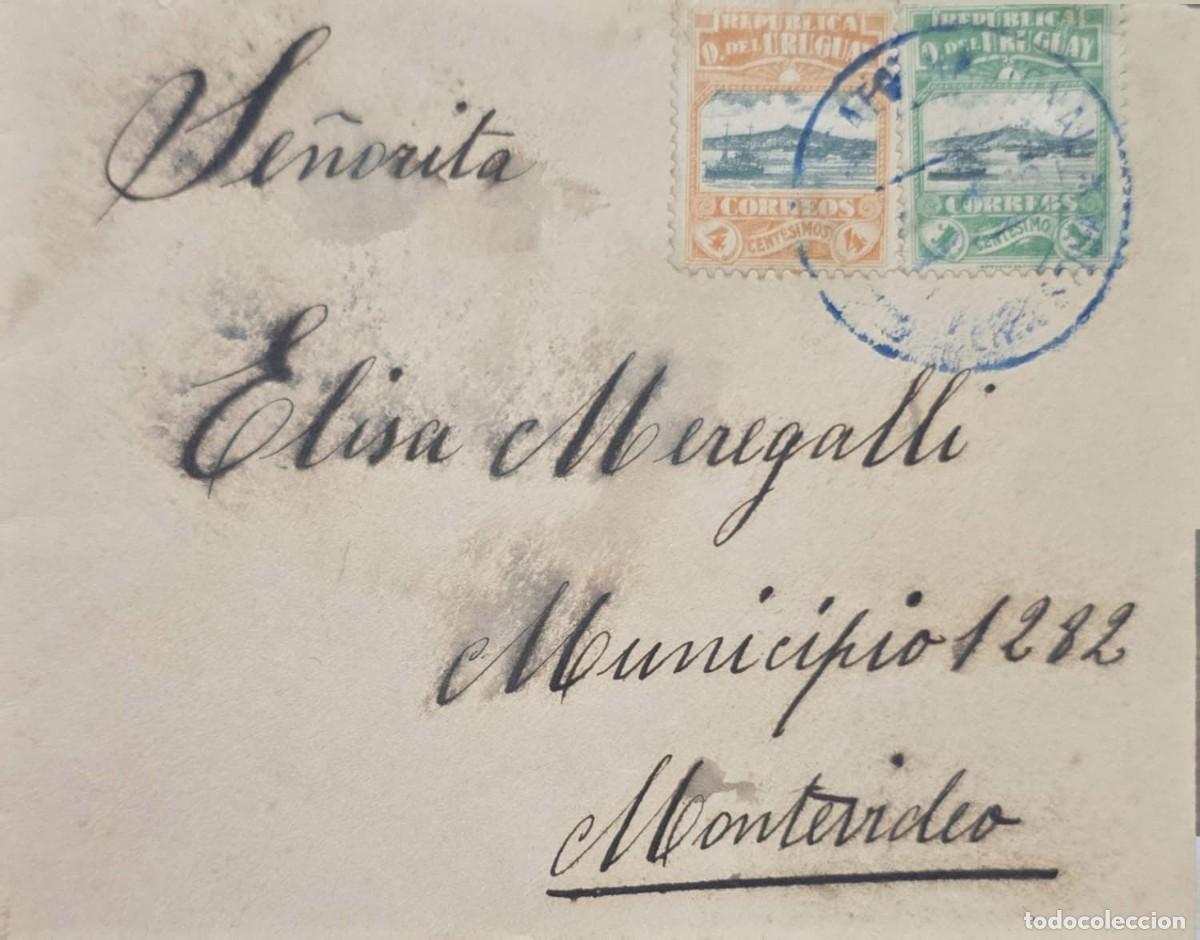 REPUBLICA
O. DEL URUGUAY
CORREOS
4 CENTESIMOS 4
REPUBLICA
O. DEL URUGUAY
CORREOS
1 CENTESIMO 1
Señorita
Elisa Meregalli
Municipio 1282
Montevideo
todocoleccion